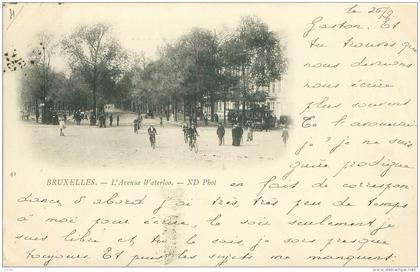 le 26/9
Gaston. Et
tu trouves que
nous devrions
nous écrire
plus souvent
Je t'avouerai
que je ne suis
guère prodigue
BRUXELLES. — L'Avenue Waterloo. — ND Phot
en fait de correspon
dance d'abord j'ai très, très peu de temps
à moi pour écrire, le soir seulement je
suis libre et tu le sais, je sors presque
toujours. Et puis les sujets me manquent;